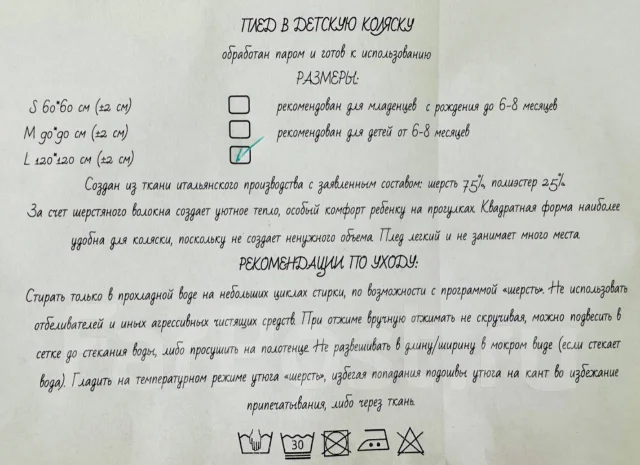 ПЛЕД В ДЕТСКУЮ КОЛЯСКУ
обработан паром и готов к использованию
РАЗМЕРЫ:
S 60*60 см (±2 см) рекомендован для младенцев с рождения до 6-8 месяцев
M 90*90 см (±2 см) рекомендован для детей от 6-8 месяцев
L 120*120 см (±2 см)
Создан из ткани итальянского производства с заявленным составом: шерсть 75%, полиэстер 25%.
За счет шерстяного волокна создает уютное тепло, особый комфорт ребенку на прогулках. Квадратная форма наиболее
удобна для коляски, поскольку не создает ненужного объема. Плед легкий и не занимает много места.
РЕКОМЕНДАЦИИ ПО УХОДУ:
Стирать только в прохладной воде на небольших циклах стирки, по возможности с программой «шерсть». Не использовать
отбеливателей и иных агрессивных чистящих средств. При отжиме вручную отжимать не скручивая, можно подвесить в
сетке до стекания воды, либо просушить на полотенце. Не развешивать в длину/ширину в мокром виде (если стекает
вода). Гладить на температурном режиме утюга «шерсть», избегая попадания подошвы утюга на кант во избежание
припечатывания, либо через ткань.
30